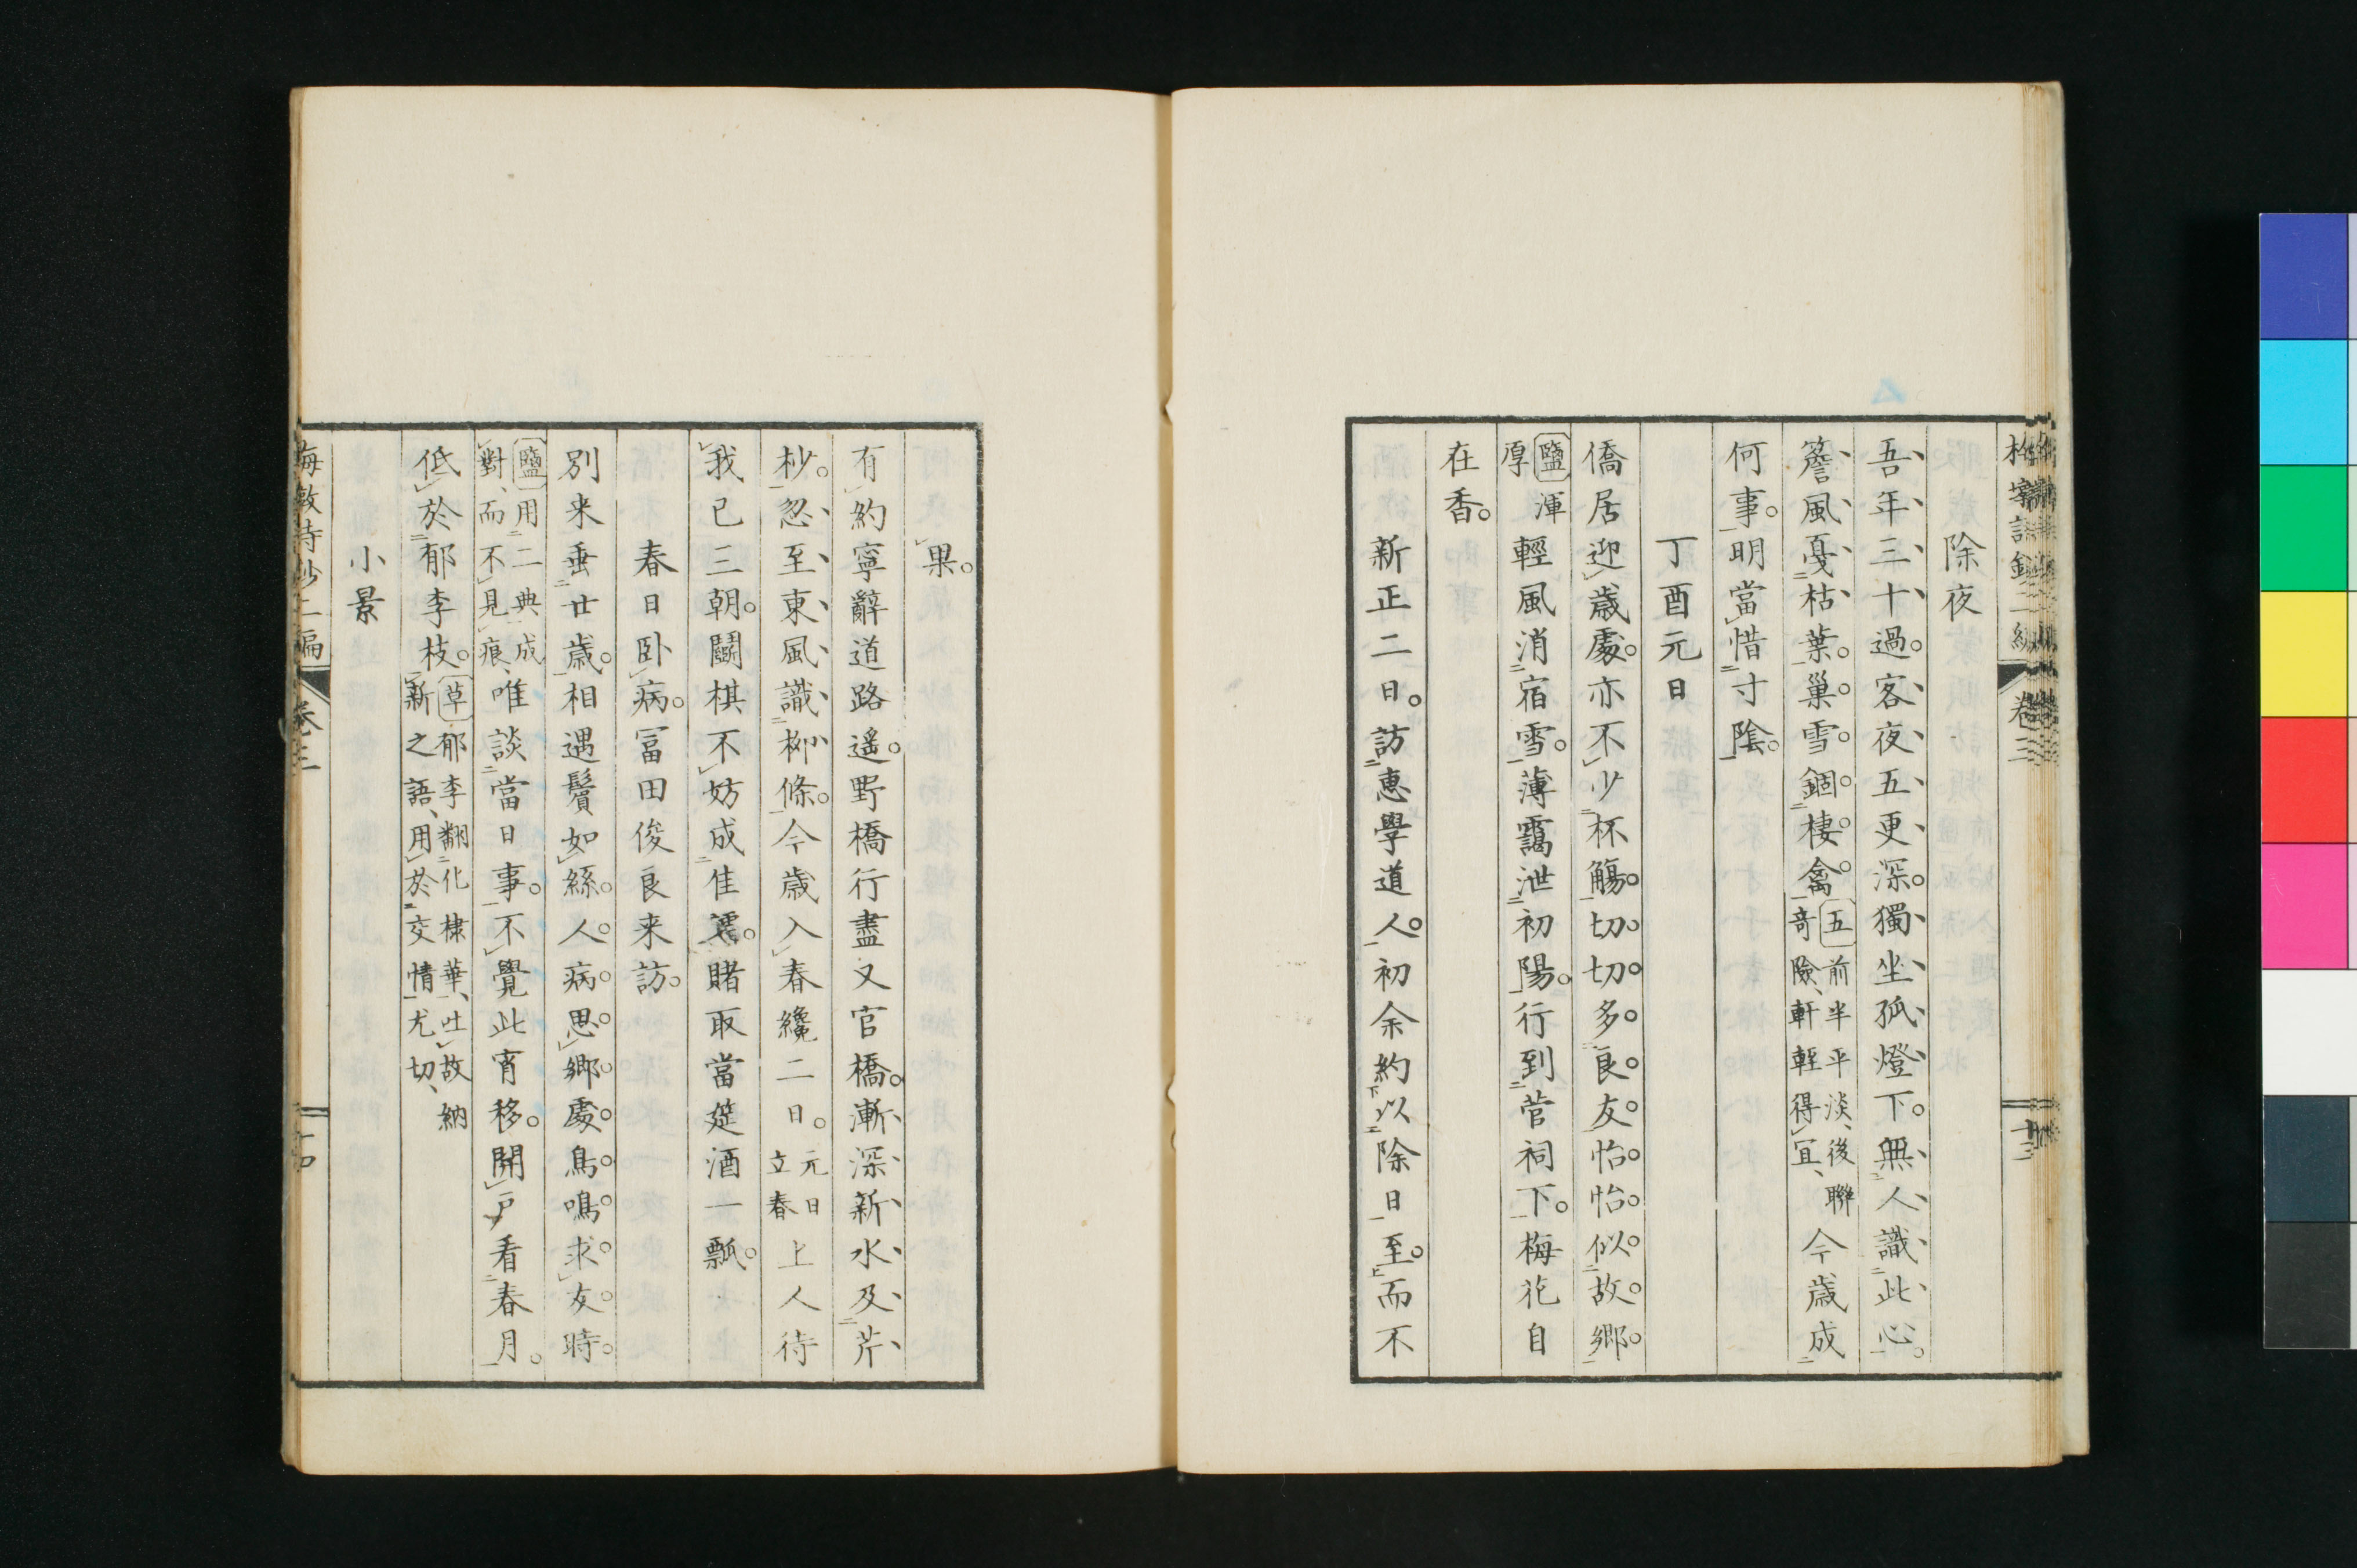 除夜
吾年三十過。客夜五更深。獨坐孤燈下。無人識此心。
簷風戛枯葉。巢雪錮棲禽。五前半平淡、後聯奇險、軒輊得宜、今歲成
何事。明當惜寸陰。
丁酉元日
僑居迎歲處。亦不少杯觴。切切多良友。怡怡似故鄉。
鹽渾厚輕風消宿雪。薄靄泄初陽。行到菅祠下。梅花自
在香。
新正二日。訪惠學道人。初余約以除日至。而不
果。
有約寧辭道路遙。野橋行盡又官橋。漸深新水及芹
杪。忽至東風識柳條。今歲入春纔二日。元日立春上人待
我已三朝。鬭棋不妨成佳䨇。賭取當筵酒一瓢。
春日卧病。冨田俊良来訪。
別来垂廿歲。相遇鬢如絲。人病思鄉處。鳥鳴求友時。
鹽用二典成對、而不見痕、唯談當日事。不覺此宵移。開戶看春月。
低於郁李枝。草郁李翻化棣華、吐故納新之語、用於交情尤切、
小景
卷三
十四